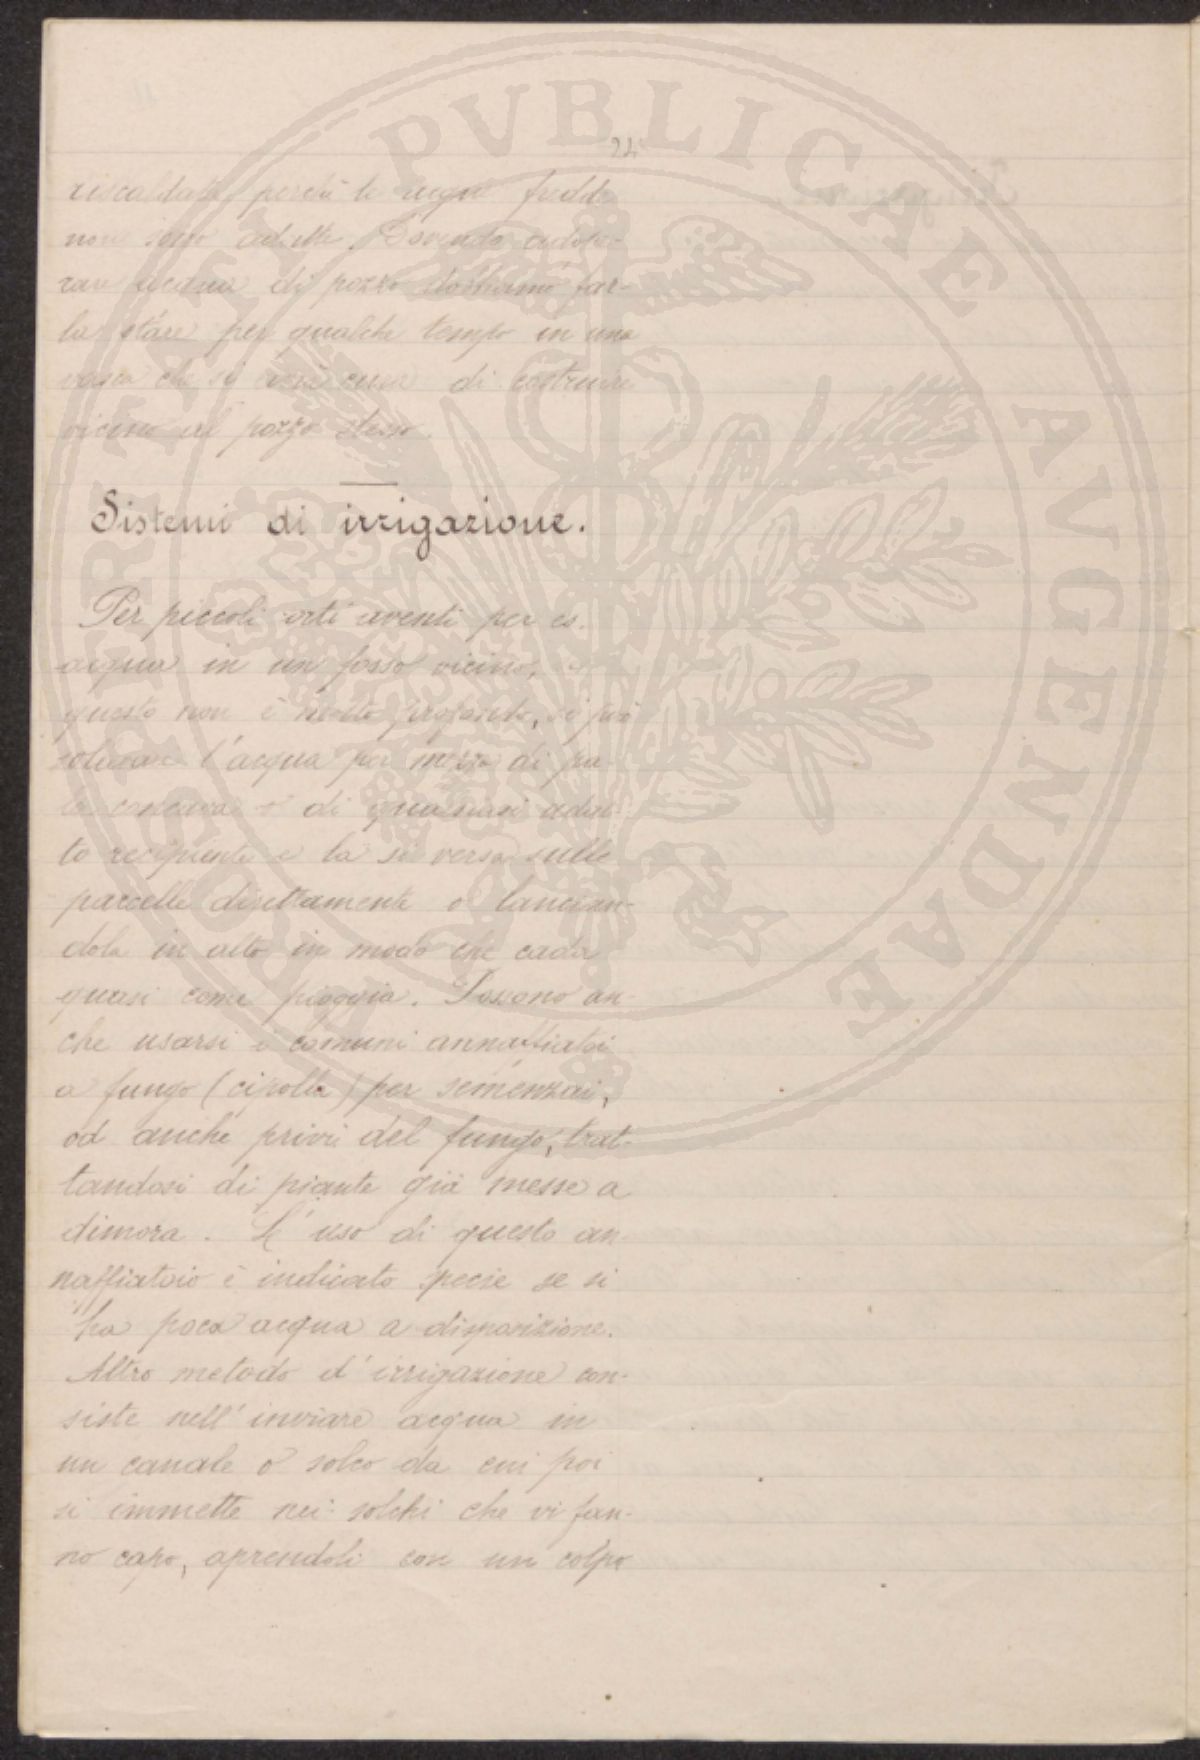 24
riscaldate, perchè le acque fredde
non sono adatte. Dovendo adope-
rare acqua di pozzo dobbiamo far-
la stare per qualche tempo in una
vasca che si avrà cura di costruire
vicino al pozzo stesso.
Sistemi di irrigazione.
Per piccoli orti aventi per es.
acqua in un fosso vicino, se
questo non è molto profondo, si può
sollevare l'acqua per mezzo di pa-
la concava o di qualsiasi adat-
to recipiente e la si versa sulle
parcelle direttamente o lancian-
dola in alto in modo che cada
quasi come pioggia. Possono an-
che usarsi i comuni annaffiatoi
a fungo (cipolla) per semenzai,
od anche privi del fungo, trat-
tandosi di piante già messe a
dimora. L'uso di questo an-
naffiatoio è indicato specie se si
ha poca acqua a disposizione.
Altro metodo d'irrigazione con-
siste nell'inviare acqua in
un canale o solco da cui poi
si immette nei solchi che vi fan-
no capo, aprendoli con un colpo
PROSPERITATI PVBLICAE AVGENDAE